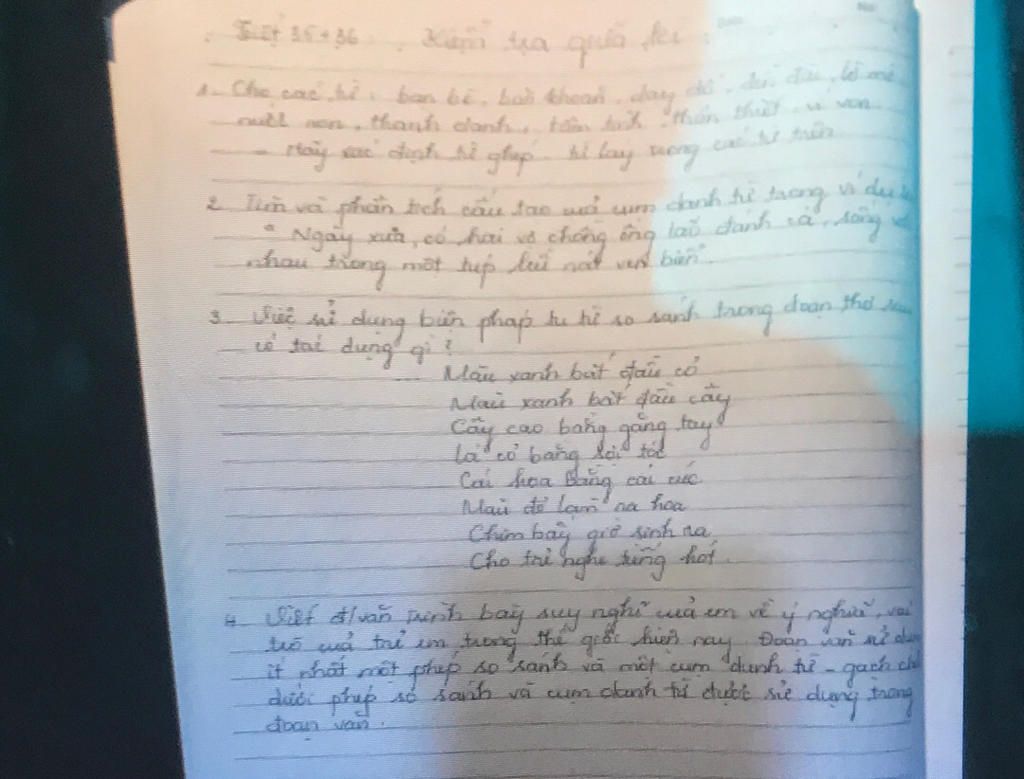 Tiết 35+36. Kiểm tra giữa kì
1. Cho các từ: bạn bè, băn khoăn, day dứt,
nước non, thanh danh, thân thiết, ve van
- Hãy xác định từ ghép, từ láy trong các từ trên
2. Tìm và phân tích cấu tạo của cụm danh từ trong ví dụ
" Ngày xưa, có hai vợ chồng ông lão đánh cá, sống
nhau trong một túp lều nát ven biển.
3. Việc sử dụng biện pháp tu từ so sánh trong đoạn thơ sau
có tác dụng gì?
Màu xanh bắt đầu cỏ
Màu xanh bắt đầu cây
Cây cao bằng gang tay
Lá cỏ bằng sợi tóc
Cái hoa bằng cái cúc
Màu đỏ làm ra hoa
Chim bấy giờ sinh ra
Cho trẻ nghe tiếng hót.
4. Viết đ/văn trình bày suy nghĩ của em về ý nghĩa, vai
trò của trẻ em trong thế giới hiện nay. Đoạn văn sử dụng
ít nhất một phép so sánh và một cụm danh từ - gạch
dưới phép so sánh và cụm danh từ được sử dụng trong
đoạn văn.